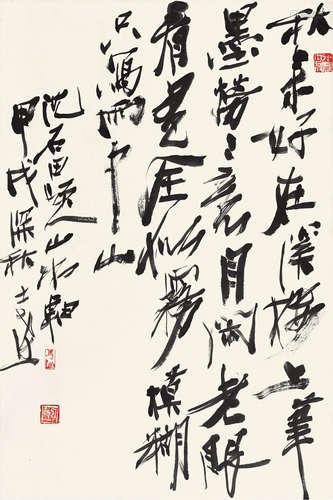 秋来好在溪樓上筆
墨勞々意自閑老眼
看花全似霧模糊
只寫雨中山
沈石田題山水軸
甲戌深秋士達